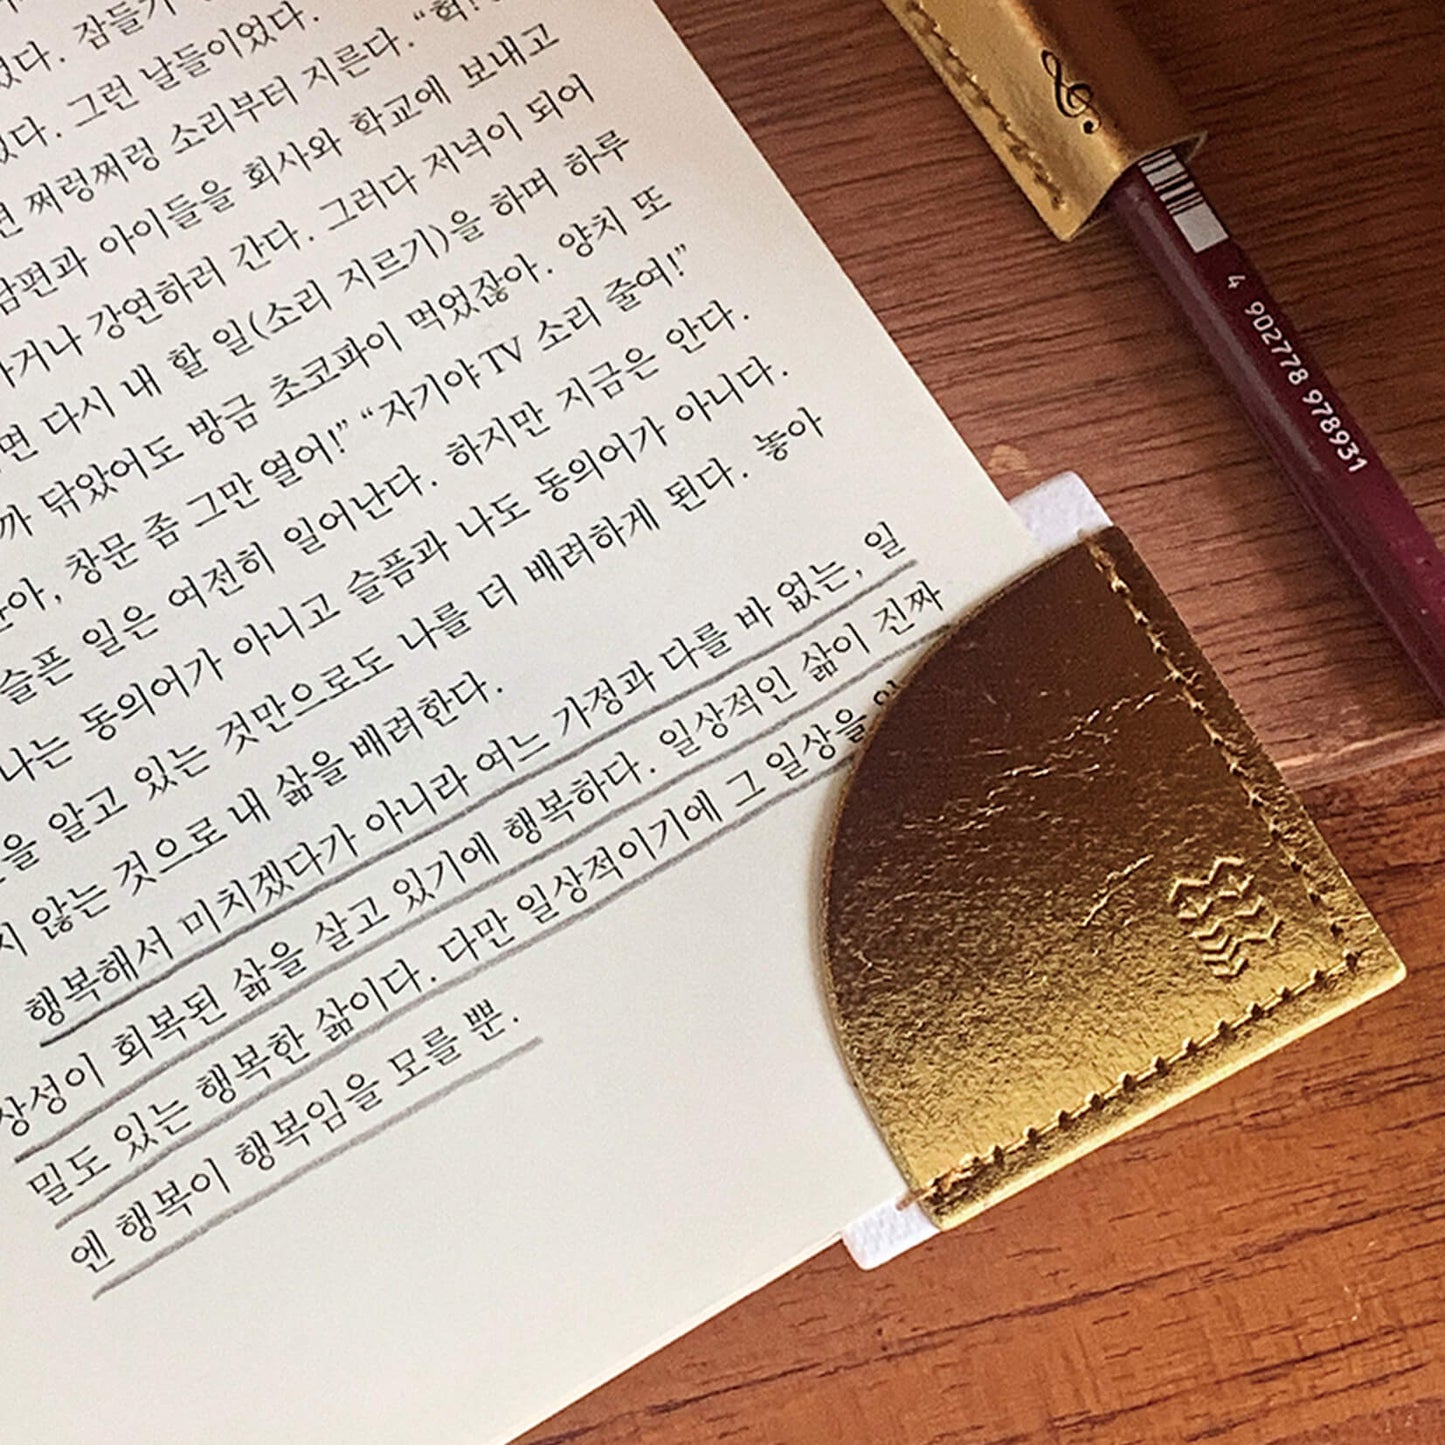 었다. 잠들기
었다. 그런 날들이었다.
면 쩌렁쩌렁 소리부터 지른다. “헉!
남편과 아이들을 회사와 학교에 보내고
하거나 강연하러 간다. 그러다 저녁이 되어
면 다시 내 할 일(소리 지르기)을 하며 하루
까 닦았어도 방금 초코파이 먹었잖아. 양치 또
아, 창문 좀 그만 열어!” “자기야 TV 소리 줄여!”
슬픈 일은 여전히 일어난다. 하지만 지금은 안다.
나는 동의어가 아니고 슬픔과 나도 동의어가 아니다.
을 알고 있는 것만으로도 나를 더 배려하게 된다. 놓아
지 않는 것으로 내 삶을 배려한다.
행복해서 미치겠다가 아니라 여느 가정과 다를 바 없는, 일
상성이 회복된 삶을 살고 있기에 행복하다. 일상적인 삶이 진짜
밀도 있는 행복한 삶이다. 다만 일상적이기에 그 일상을
엔 행복이 행복임을 모를 뿐.
4 902778 978931